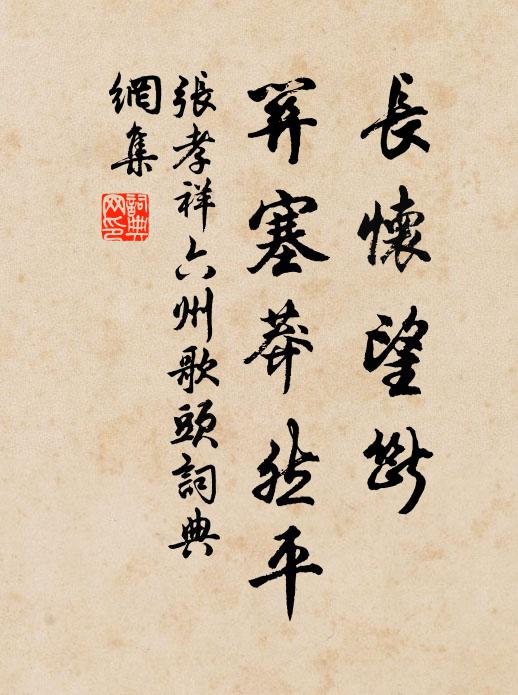 長懷望斷
關塞莽然平
張孝祥六州歌頭詞典
網集
詞典
网印